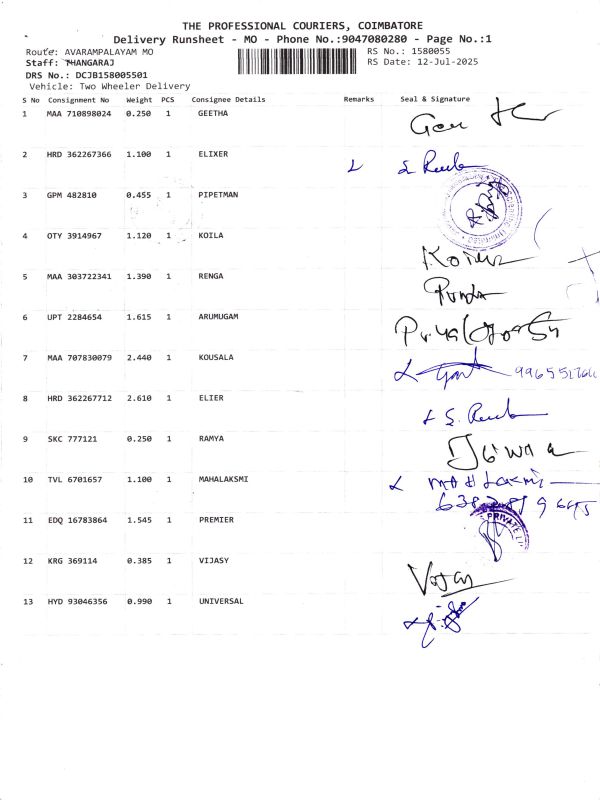 THE PROFESSIONAL COURIERS, COIMBATORE
Delivery Runsheet - MO - Phone No.:9047080280 - Page No.:1
Route: AVARAMPALAYAM MO RS No.: 1580055
Staff: THANGARAJ RS Date: 12-Jul-2025
DRS No.: DCJB158005501
Vehicle: Two Wheeler Delivery
S No Consignment No Weight PCS Consignee Details Remarks Seal & Signature
1 MAA 710898024 0.250 1 GEETHA
2 HRD 362267366 1.100 1 ELIXER
3 GPM 482810 0.455 1 PIPETMAN
4 OTY 3914967 1.120 1 KOILA
5 MAA 303722341 1.390 1 RENGA
6 UPT 2284654 1.615 1 ARUMUGAM
7 MAA 707830079 2.440 1 KOUSALA
8 HRD 362267712 2.610 1 ELIER
9 SKC 777121 0.250 1 RAMYA
10 TVL 6701657 1.100 1 MAHALAKSMI
11 EDQ 16783864 1.545 1 PREMIER
PRIVATE
12 KRG 369114 0.385 1 VIJASY
13 HYD 93046356 0.990 1 UNIVERSAL